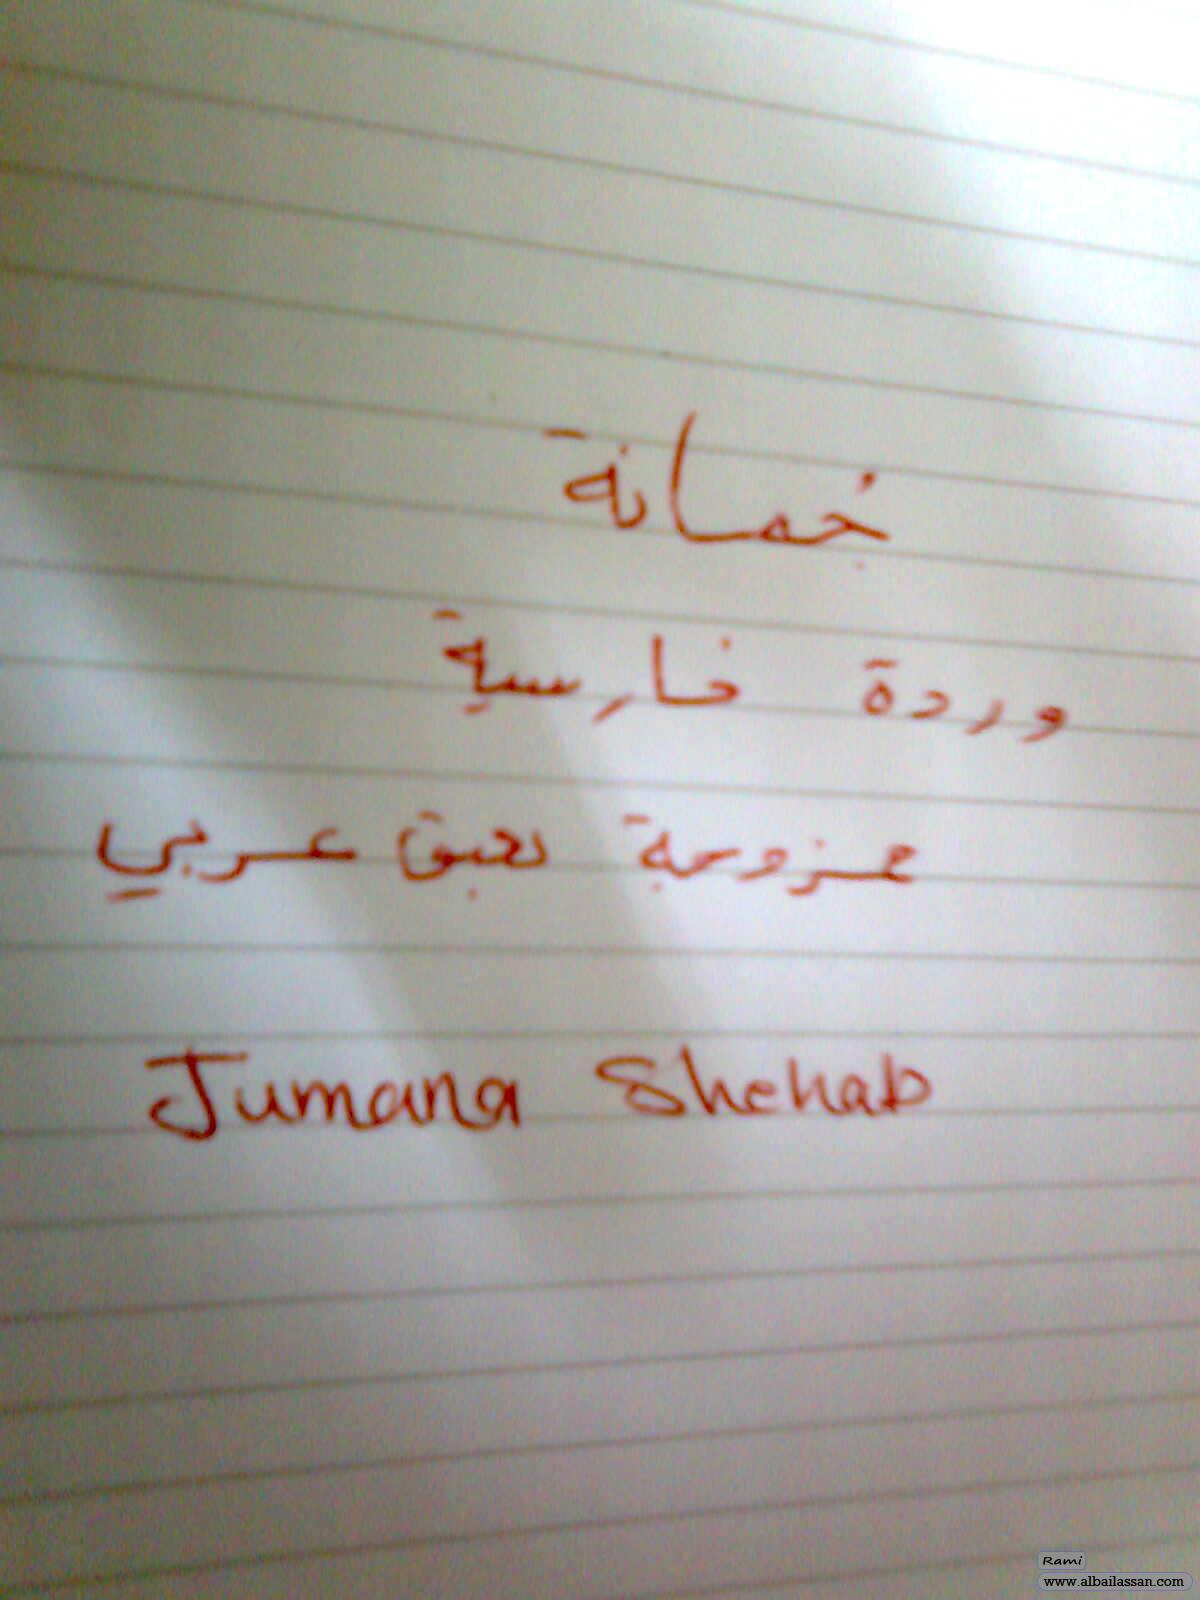 جمانة
وردة فارسية
ممزوجة بعبق عربي
Jumana Shehab
Rami
www.albailassan.com